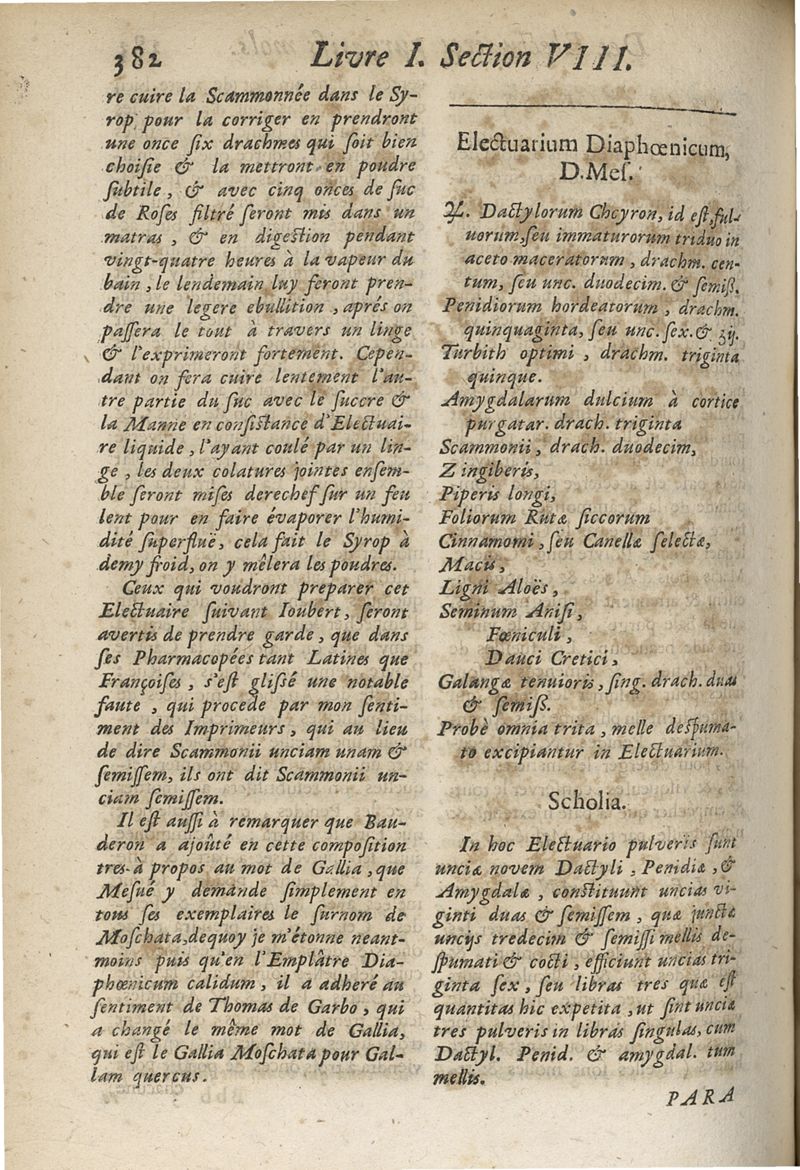 382 Livre I. Section VIII.
re cuire la Scammonnée dans le Sy-
rop pour la corriger en prendront
une once six drachmes qui soit bien
choisie & la mettront en poudre
subtile, & avec cinq onces de suc
de Roses filtré seront mis dans un
matras, & en digestion pendant
vingt-quatre heures à la vapeur du
bain, le lendemain luy feront pren-
dre une legere ebullition, aprés on
passera le tout à travers un linge
& l'exprimeront fortement. Cepen-
dant on fera cuire lentement l'au-
tre partie du suc avec le succre &
la Manne en consistance d'Electuai-
re liquide, l'ayant coulé par un lin-
ge, les deux colatures jointes ensem-
ble seront mises derechef sur un feu
lent pour en faire évaporer l'humi-
dité superfluë, cela fait le Syrop à
demy froid, on y mêlera les poudres.
Ceux qui voudront preparer cet
Electuaire suivant Ioubert, seront
avertis de prendre garde, que dans
ses Pharmacopées tant Latines que
Françoises, s'est glissé une notable
faute, qui procede par mon senti-
ment des Imprimeurs, qui au lieu
de dire Scammonii unciam unam &
semissem, ils ont dit Scammonii un-
ciam semissem.
Il est aussi à remarquer que Bau-
deron a ajoûté en cette composition
tres-à propos au mot de Gallia, que
Mesué y demande simplement en
tous ses exemplaires le surnom de
Moschata, dequoy je m'étonne neant-
moins puis qu'en l'Emplâtre Dia-
phœnicum calidum, il a adheré au
sentiment de Thomas de Garbo, qui
a changé le même mot de Gallia,
qui est le Gallia Moschata pour Gal-
lam quercus.
Electuarium Diaphœnicum,
D. Mes.
℞. Dactylorum Cheyron, id est, ful-
uorum, seu immaturorum triduo in
aceto maceratorum, drachm. cen-
tum, seu unc. duodecim. & semiß.
Penidiorum hordeatorum, drachm.
quinquaginta, seu unc. sex. & ʒij.
Turbith optimi, drachm. triginta
quinque.
Amygdalarum dulcium à cortice
purgatar. drach. triginta
Scammonii, drach. duodecim,
Zingiberis,
Piperis longi,
Foliorum Rutæ siccorum
Cinnamomi, seu Canellæ selectæ,
Macis,
Ligni Aloës,
Seminum Anisi,
Fœniculi,
Dauci Cretici,
Galangæ tenuioris, sing. drach. duas
& semiß.
Probè omnia trita, melle despuma-
to excipiantur in Electuarium.
Scholia.
In hoc Electuario pulveris sunt
unciæ novem Dactyli, Penidiæ, &
Amygdalæ, constituunt uncias vi-
ginti duas & semissem, quæ junctæ
uncijs tredecim & semissi mellis de-
spumati & cocti, efficiunt uncias tri-
ginta sex, seu libras tres quæ est
quantitas hic expetita, ut sint unciæ
tres pulveris in libras singulas, cum
Dactyl. Penid. & amygdal. tum
mellis.
PARA